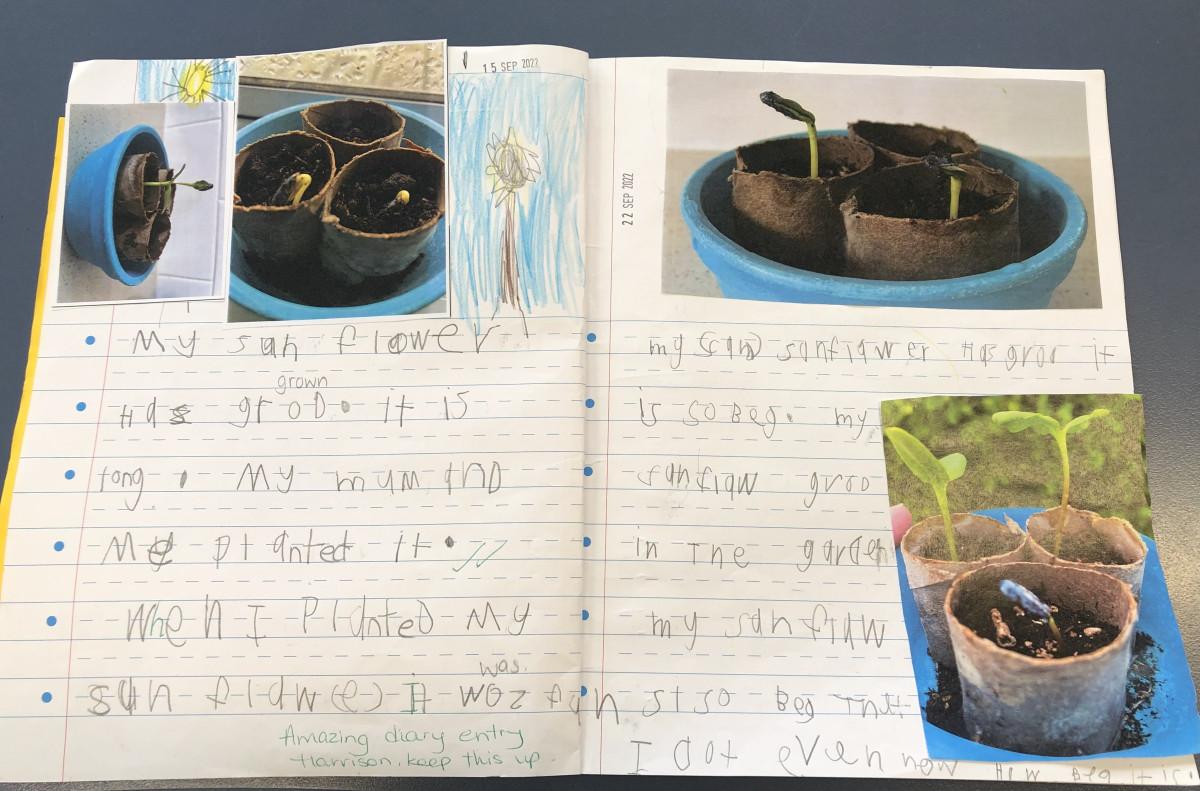 15 SEP 2022
My sun flower
grown
Has groD. it is
tong. My mum anD
Me planted it.
When I PlanteD My
was.
sun flaw(e) It woz fun
Amazing diary entry
Harrison. keep this up.
22 SEP 2022
my (san) sanflawer Has groo it
is so Beg. my
sanflaw groo
in The garden
my sanflaw
is so Beg That
I Dot even now How Beg it is.